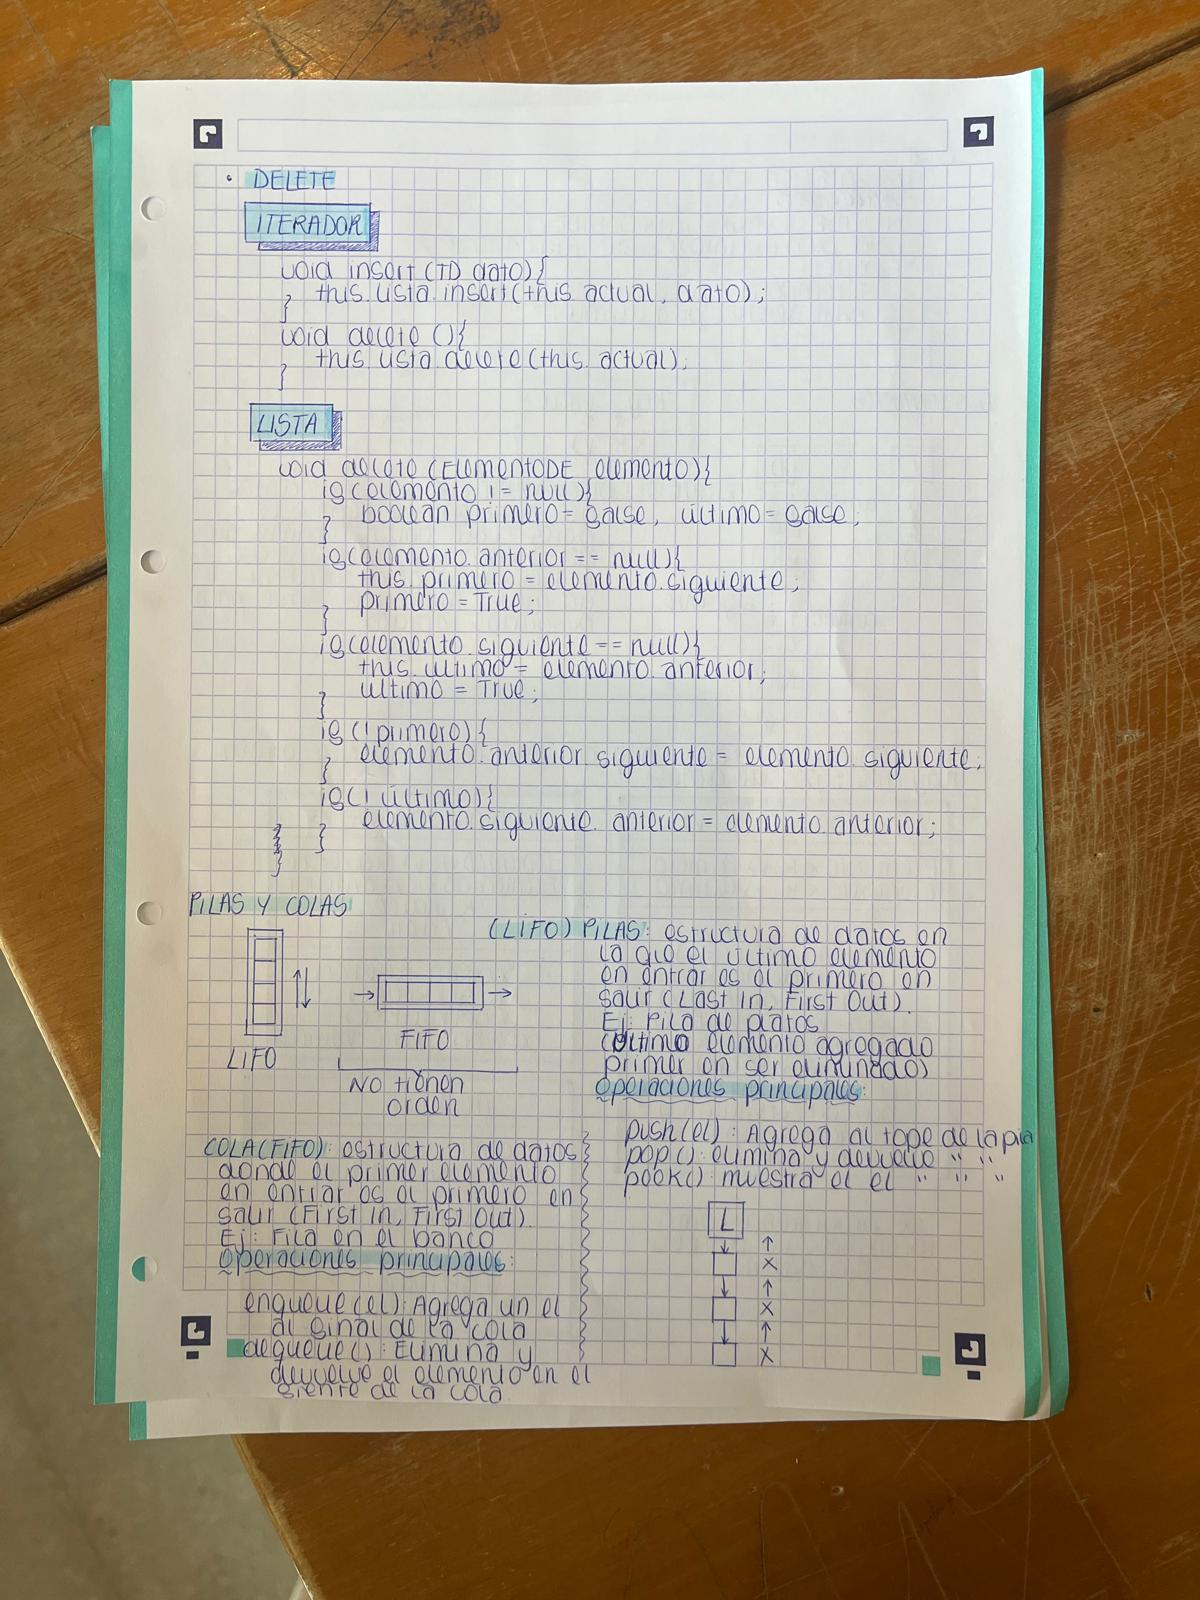 • DELETE
ITERADOR
void insert (TD dato){
this.lista.insert(this.actual, dato);
}
void delete (){
this.lista.delete(this.actual);
}
LISTA
void delete (ElementoDE elemento){
if(elemento != null){
boolean primero = false, último = false;
}
if(elemento.anterior == null){
this.primero = elemento.siguiente;
primero = True;
}
if(elemento.siguiente == null){
this.ultimo = elemento.anterior;
ultimo = True;
}
if(!primero){
elemento.anterior.siguiente = elemento.siguiente;
}
if(! último){
elemento.siguiente.anterior = elemento.anterior;
}
}
PILAS Y COLAS
LIFO
FIFO
NO tienen
orden
(LIFO) PILAS: estructura de datos en
la que el último elemento
en entrar es el primero en
salir (Last in, First Out).
Ej: Pila de platos
(último elemento agregado
primer en ser eliminado)
operaciones principales:
push(el): Agrega al tope de la pila
pop(): elimina y devuelve " "
peek(): muestra el el " " "
L
x
x
x
COLA(FIFO): estructura de datos
donde el primer elemento
en entrar es el primero en
salir (First in, First Out).
Ej: Fila en el banco
operaciones principales:
enqueue(el): Agrega un el
al final de la cola
dequeue(): Elimina y
devuelve el elemento en el
frente de la cola.